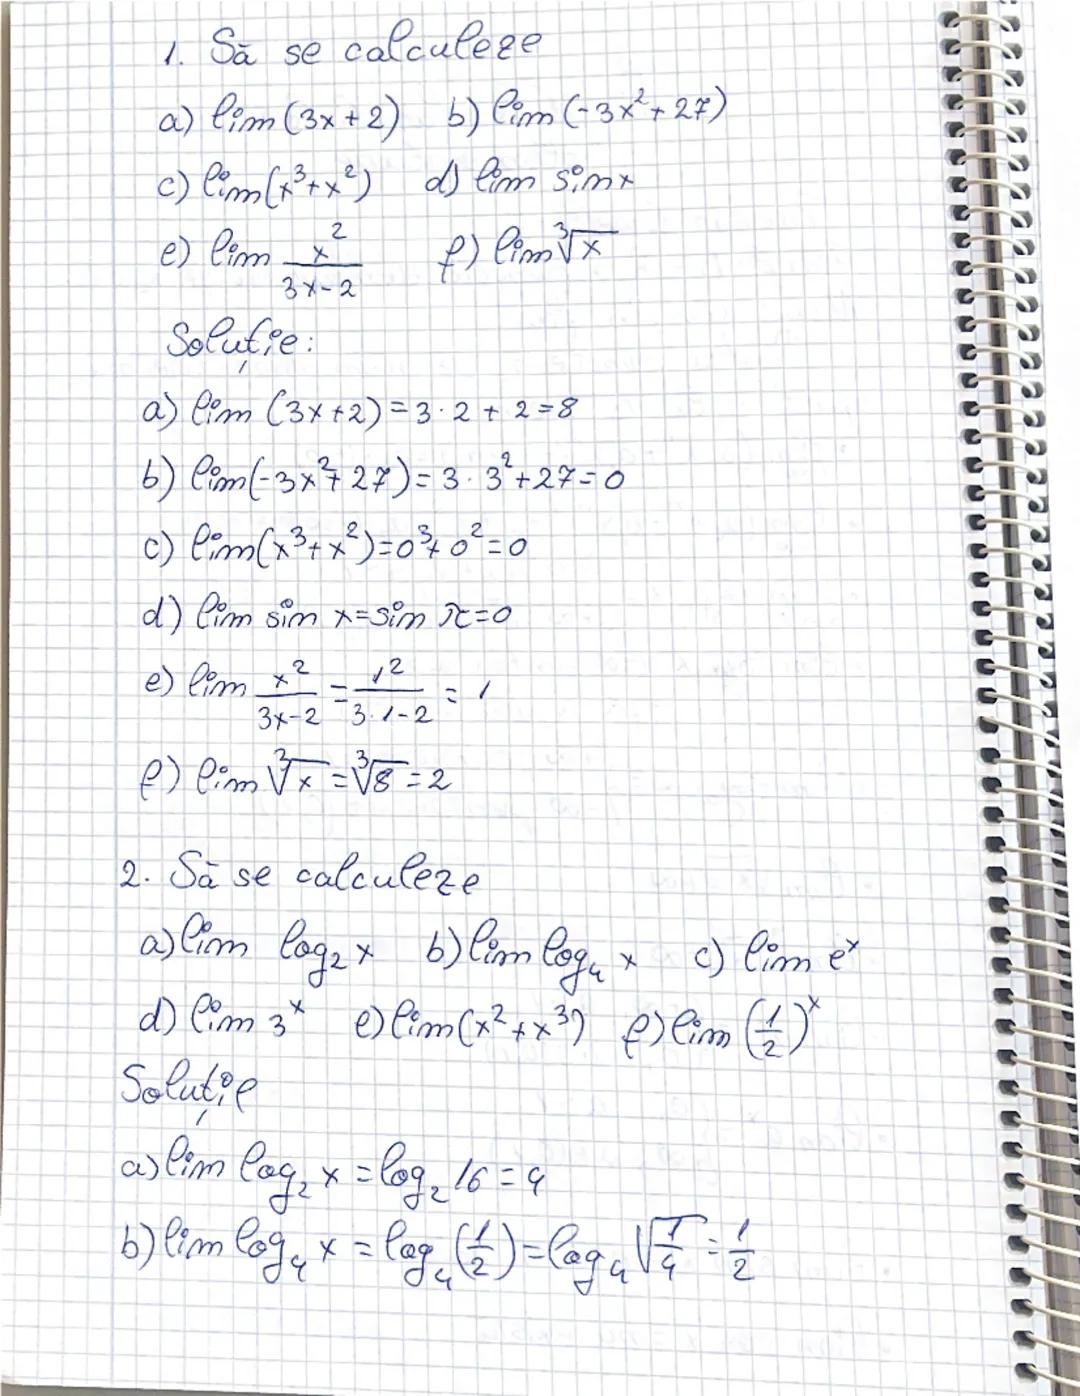 1. Să se calculeze
a) lim (3x+2) b) lim (-3x²+27)
c) lim(x³+x²) d) lim sin x
e) lim x²/(3x-2) f) lim ∛x
Soluție:
a) lim (3x+2)=3·2+2=8
b) lim(-3x²+27)=3·3²+27=0
c) lim(x³+x²)=0³+0²=0
d) lim sin x=sin π=0
e) lim x²/(3x-2) = 1²/(3·1-2) = 1
f) lim ∛x=∛8=2
2. Să se calculeze
a) lim log₂ x b) lim log₄ x c) lim eˣ
d) lim 3ˣ e) lim(x²+x³) f) lim (1/2)ˣ
Soluție
a) lim log₂ x = log₂ 16 = 4
b) lim log₄ x = log₄ (1/2) = log₄ √(1/4) = 1/2